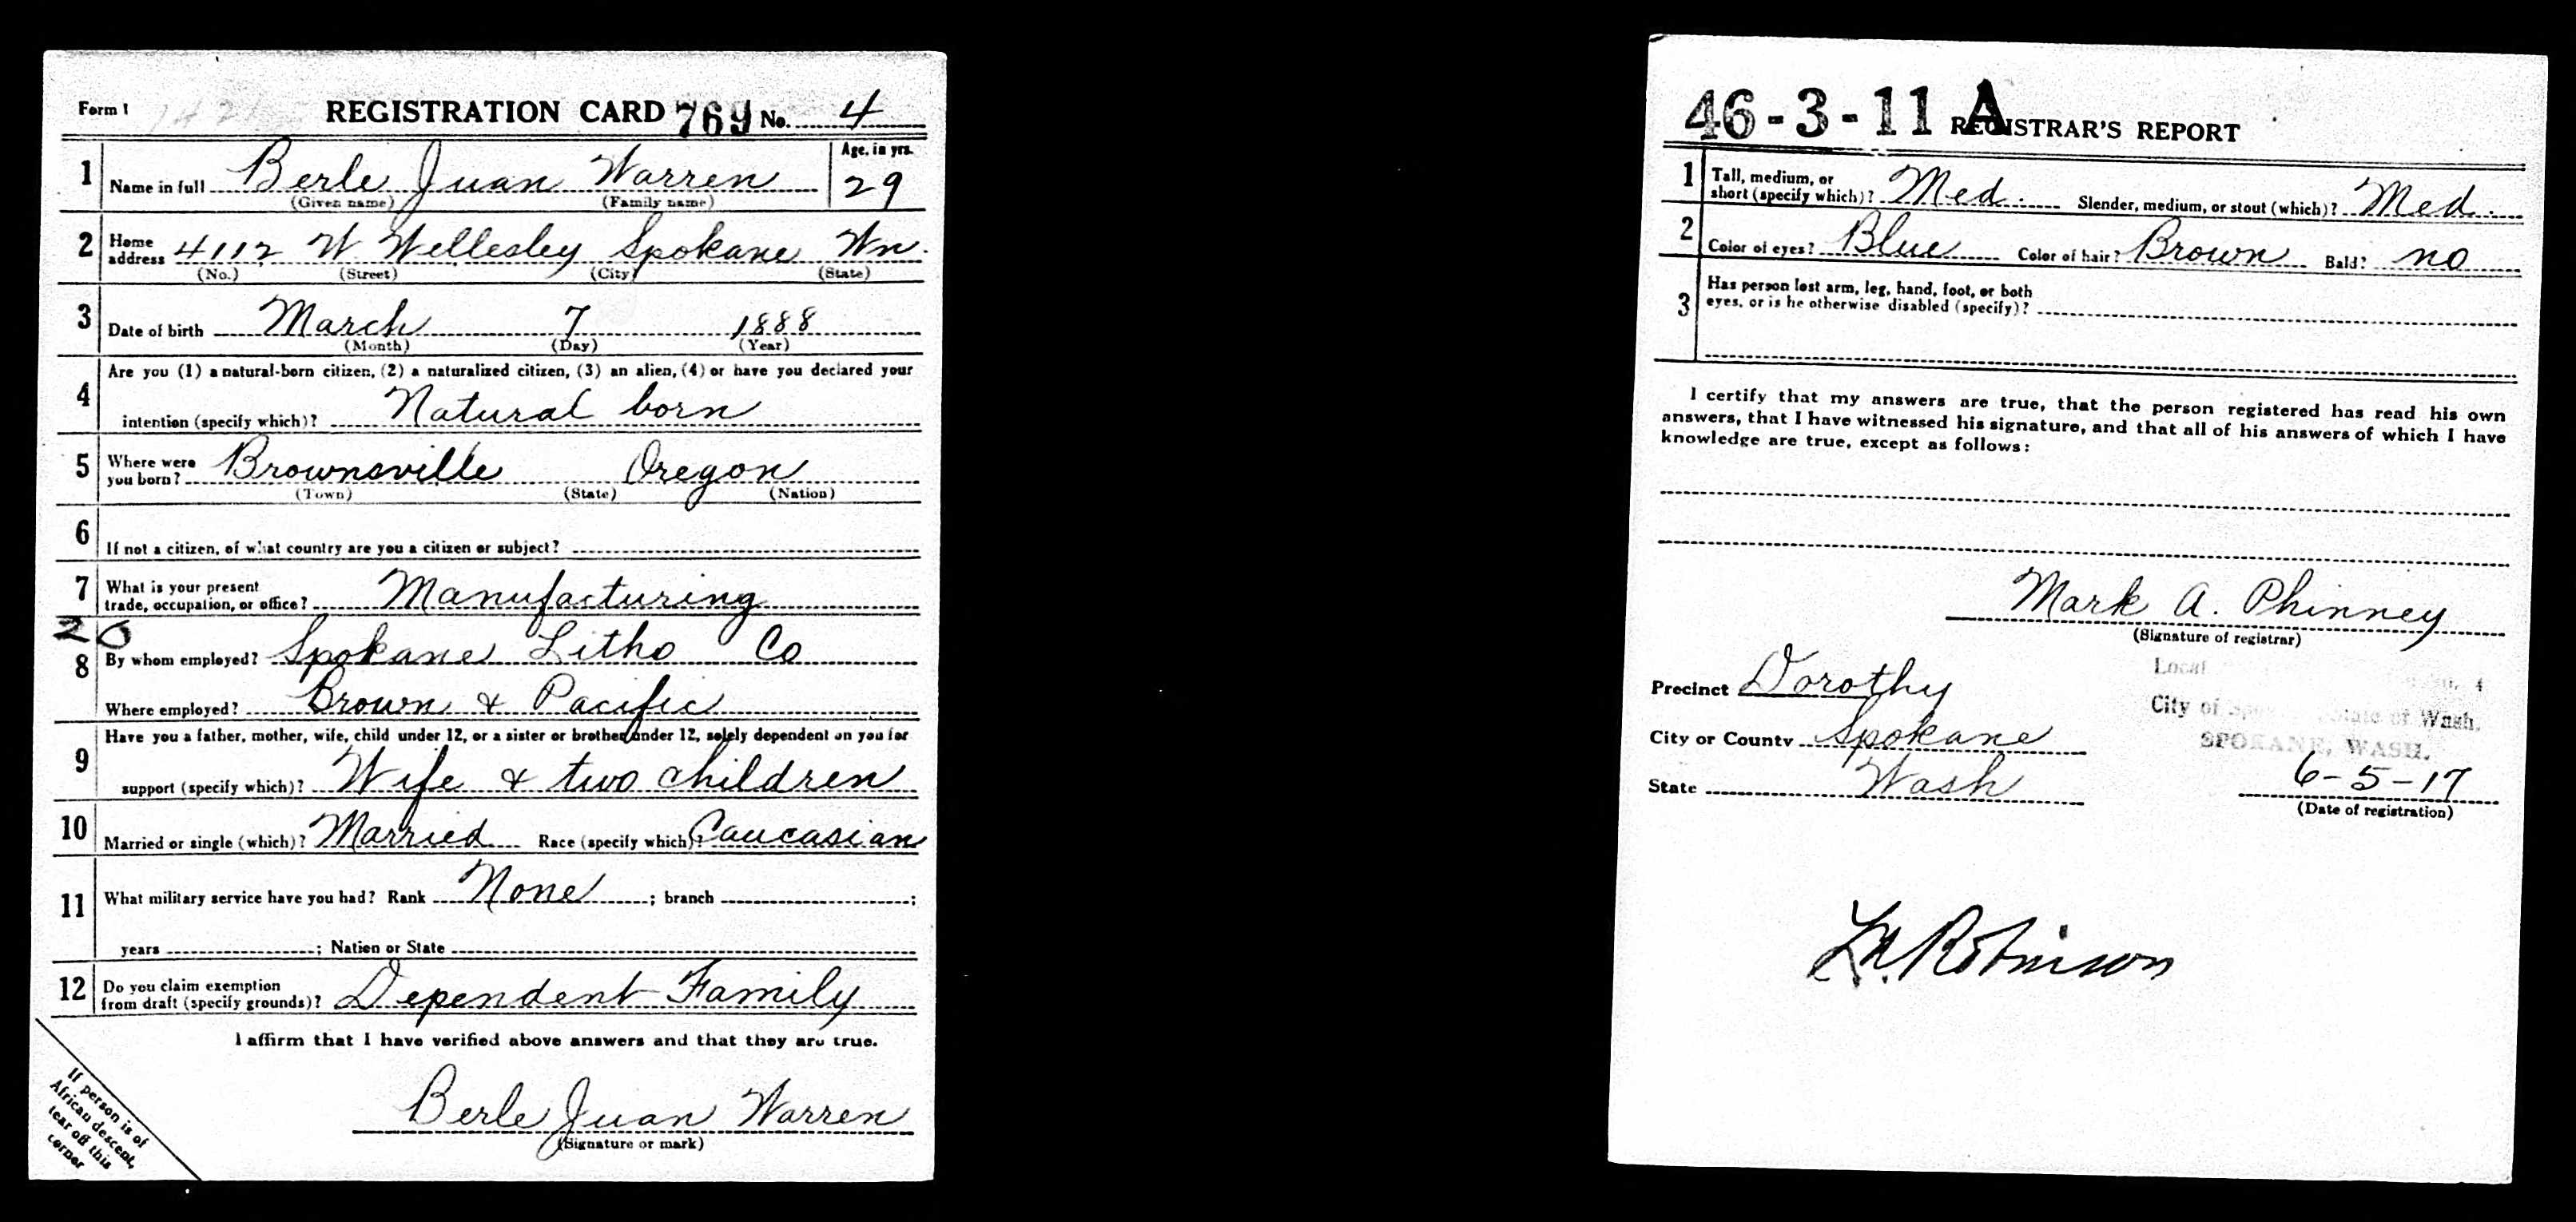 Form 1 REGISTRATION CARD 769 No. 4
1 Name in full Berle Juan Warren Age, in yrs. 29
(Given name) (Family name)
2 Home address 4112 W Wellesley Spokane Wn.
(No.) (Street) (City) (State)
3 Date of birth March 7 1888
(Month) (Day) (Year)
4 Are you (1) a natural-born citizen, (2) a naturalized citizen, (3) an alien, (4) or have you declared your
intention (specify which)? Natural born
5 Where were you born? Brownsville Oregon
(Town) (State) (Nation)
6 If not a citizen, of what country are you a citizen or subject?
7 What is your present trade, occupation, or office? Manufacturing
20
8 By whom employed? Spokane Litho Co
Where employed? Brown & Pacific
9 Have you a father, mother, wife, child under 12, or a sister or brother under 12, solely dependent on you for
support (specify which)? Wife & two children
10 Married or single (which)? Married Race (specify which)? Caucasian
11 What military service have you had? Rank None ; branch ;
years ; Nation or State
12 Do you claim exemption from draft (specify grounds)? Dependent Family
I affirm that I have verified above answers and that they are true.
Berle Juan Warren
(Signature or mark)
If person is of
African descent,
tear off this
corner
46-3-11 A REGISTRAR'S REPORT
1 Tall, medium, or short (specify which)? Med. Slender, medium, or stout (which)? Med.
2 Color of eyes? Blue Color of hair? Brown Bald? no
3 Has person lost arm, leg, hand, foot, or both
eyes, or is he otherwise disabled (specify)?
I certify that my answers are true, that the person registered has read his own
answers, that I have witnessed his signature, and that all of his answers of which I have
knowledge are true, except as follows:
Mark A. Phinney
(Signature of registrar)
Precinct Dorothy
Local 4
City of State of Wash.
City or County Spokane
SPOKANE, WASH.
State Wash 6-5-17
(Date of registration)
Robinson